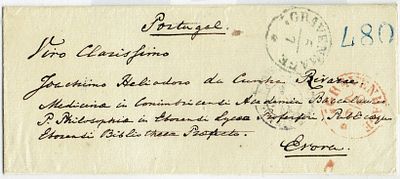 Portugal.
'S GRAVENHAGE
480
Viro Clarissimo
Joachimo Heliodoro da Cunha Rivara
Medicinæ in Conimbricensi Academia Baccalaureo,
P. Philosophiæ in Eborensi Lyceo Professori, Publicæque
Eborensi Bibliothecæ Præfecto.
Evora.